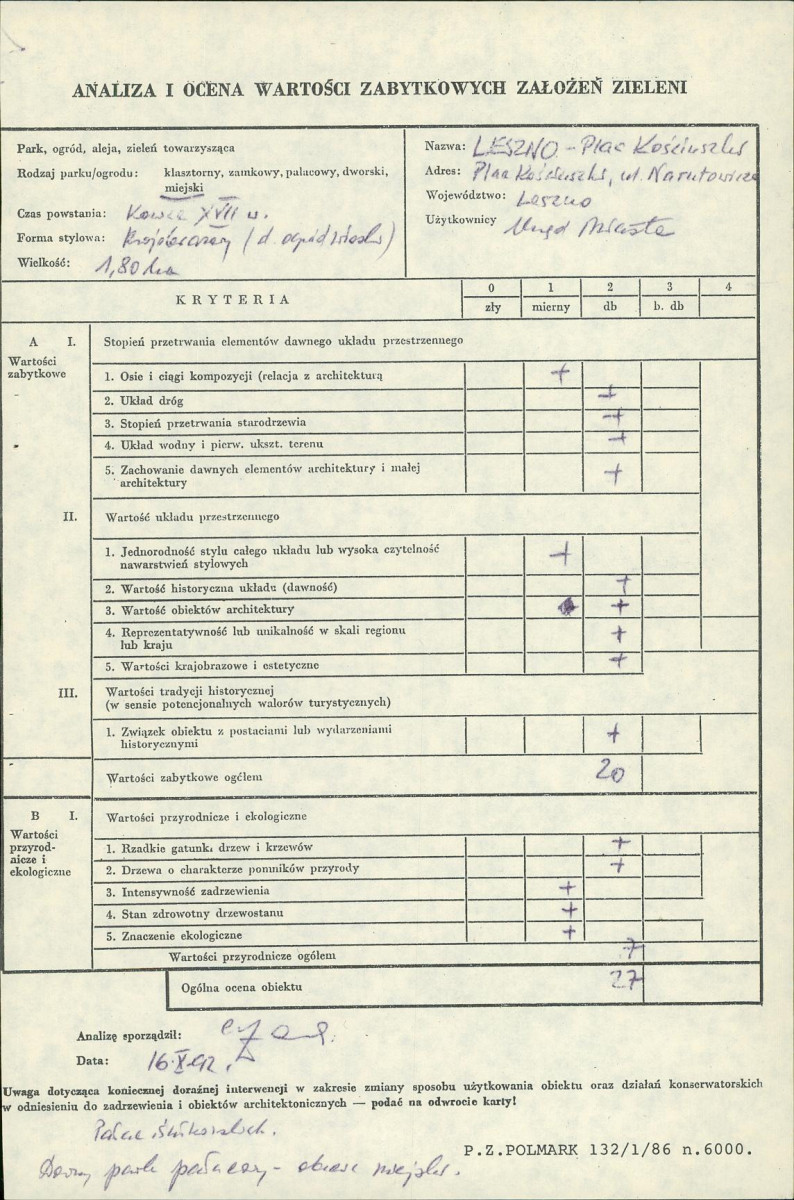 ANALIZA I OCENA WARTOŚCI ZABYTKOWYCH ZAŁOŻEŃ ZIELENI
Park, ogród, aleja, zieleń towarzysząca
Rodzaj parku/ogrodu: klasztorny, zamkowy, pałacowy, dworski,
miejski
Czas powstania: Koniec XVII w.
Forma stylowa: Krajobrazowy (d. ogród włoski)
Wielkość: 1,80 ha
Nazwa: LESZNO - Plac Kościuszki
Adres: Plac Kościuszki, ul. Narutowicza
Województwo: Leszno
Użytkownicy Urząd Miasta
KRYTERIA
0 1 2 3 4
zły mierny db b. db
A I. Stopień przetrwania elementów dawnego układu przestrzennego
Wartości
zabytkowe
1. Osie i ciągi kompozycji (relacja z architekturą +
2. Układ dróg +
3. Stopień przetrwania starodrzewia +
4. Układ wodny i pierw. ukszt. terenu +
5. Zachowanie dawnych elementów architektury i małej
architektury +
II. Wartość układu przestrzennego
1. Jednorodność stylu całego układu lub wysoka czytelność
nawarstwień stylowych +
2. Wartość historyczna układu (dawność) +
3. Wartość obiektów architektury +
4. Reprezentatywność lub unikalność w skali regionu
lub kraju +
5. Wartości krajobrazowe i estetyczne +
III. Wartości tradycji historycznej
(w sensie potencjonalnych walorów turystycznych)
1. Związek obiektu z postaciami lub wydarzeniami
historycznymi +
Wartości zabytkowe ogółem 20
B I. Wartości przyrodnicze i ekologiczne
Wartości
przyrod-
nicze i
ekologiczne
1. Rzadkie gatunki drzew i krzewów +
2. Drzewa o charakterze pomników przyrody +
3. Intensywność zadrzewienia +
4. Stan zdrowotny drzewostanu +
5. Znaczenie ekologiczne +
Wartości przyrodnicze ogółem 7
Ogólna ocena obiektu 27
Analizę sporządził:
Data: 16.X.92.
Uwaga dotycząca koniecznej doraźnej interwencji w zakresie zmiany sposobu użytkowania obiektu oraz działań konserwatorskich
w odniesieniu do zadrzewienia i obiektów architektonicznych — podać na odwrocie karty!
Pałac Sułkowskich.
P.Z.POLMARK 132/1/86 n.6000.
Dawny park pałacowy - obecnie miejski.